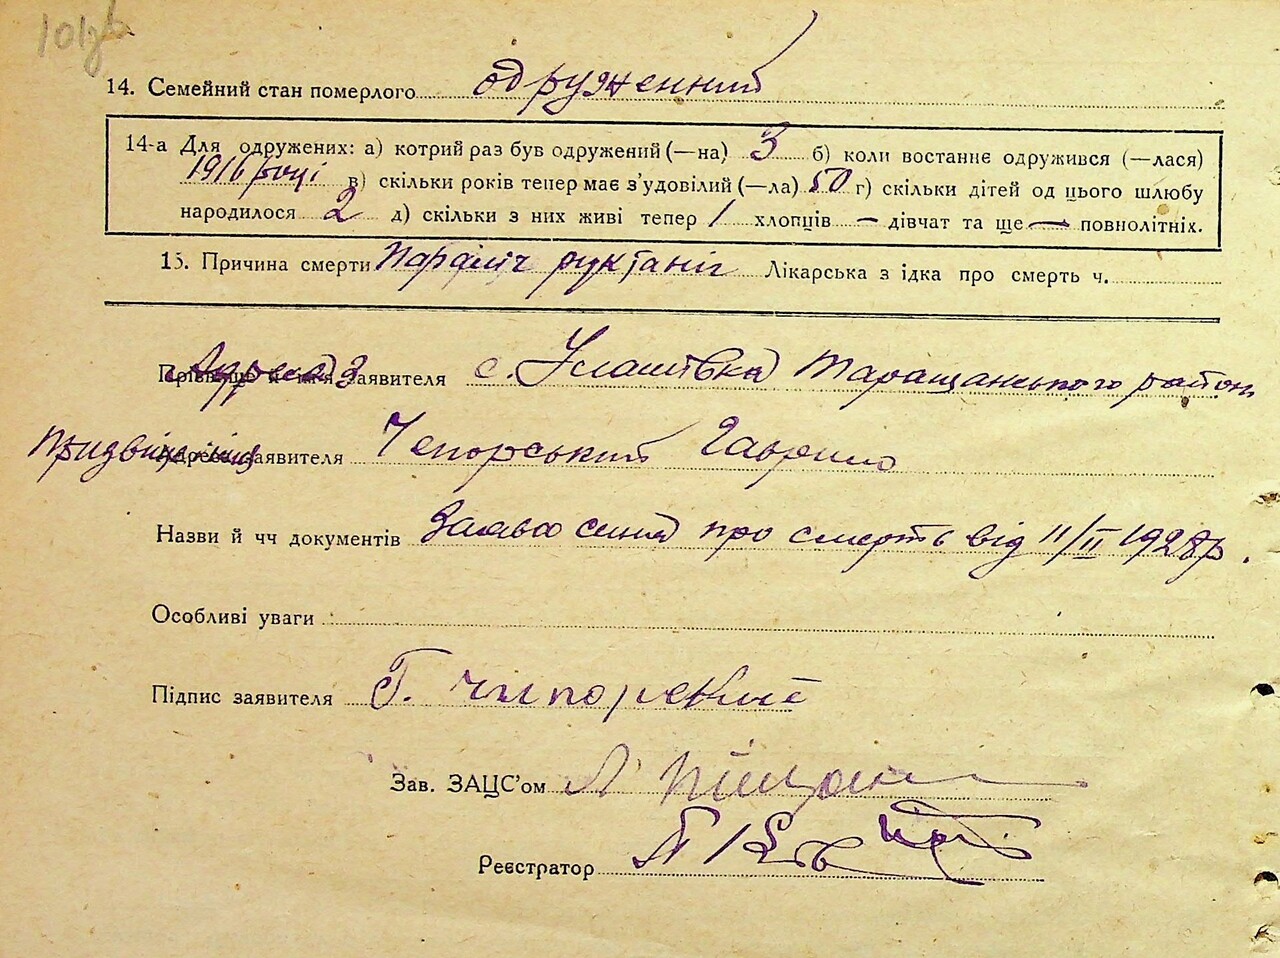 101зв
14. Семейний стан померлого одруженний
14-а Для одружених: а) котрий раз був одружений (—на) 3 б) коли востаннє одружився (—лася)
1916 році в) скільки років тепер має з’удовілий (—ла) 50 г) скільки дітей од цього шлюбу
народилося 2 д) скільки з них живі тепер 1 хлопців — дівчат та ще — повнолітніх.
15. Причина смерти Параліч Лікарська з ідка про смерть ч.
Адреса заявителя с. Улашівка Таращанського район
заявителя Чепорський Гаврило
Назви й чч документів Заява сина про смерть від 11/II 1928 р.
Особливі уваги
Підпис заявителя Г. Чипорский
Зав. ЗАЦС’ом
Реєстратор